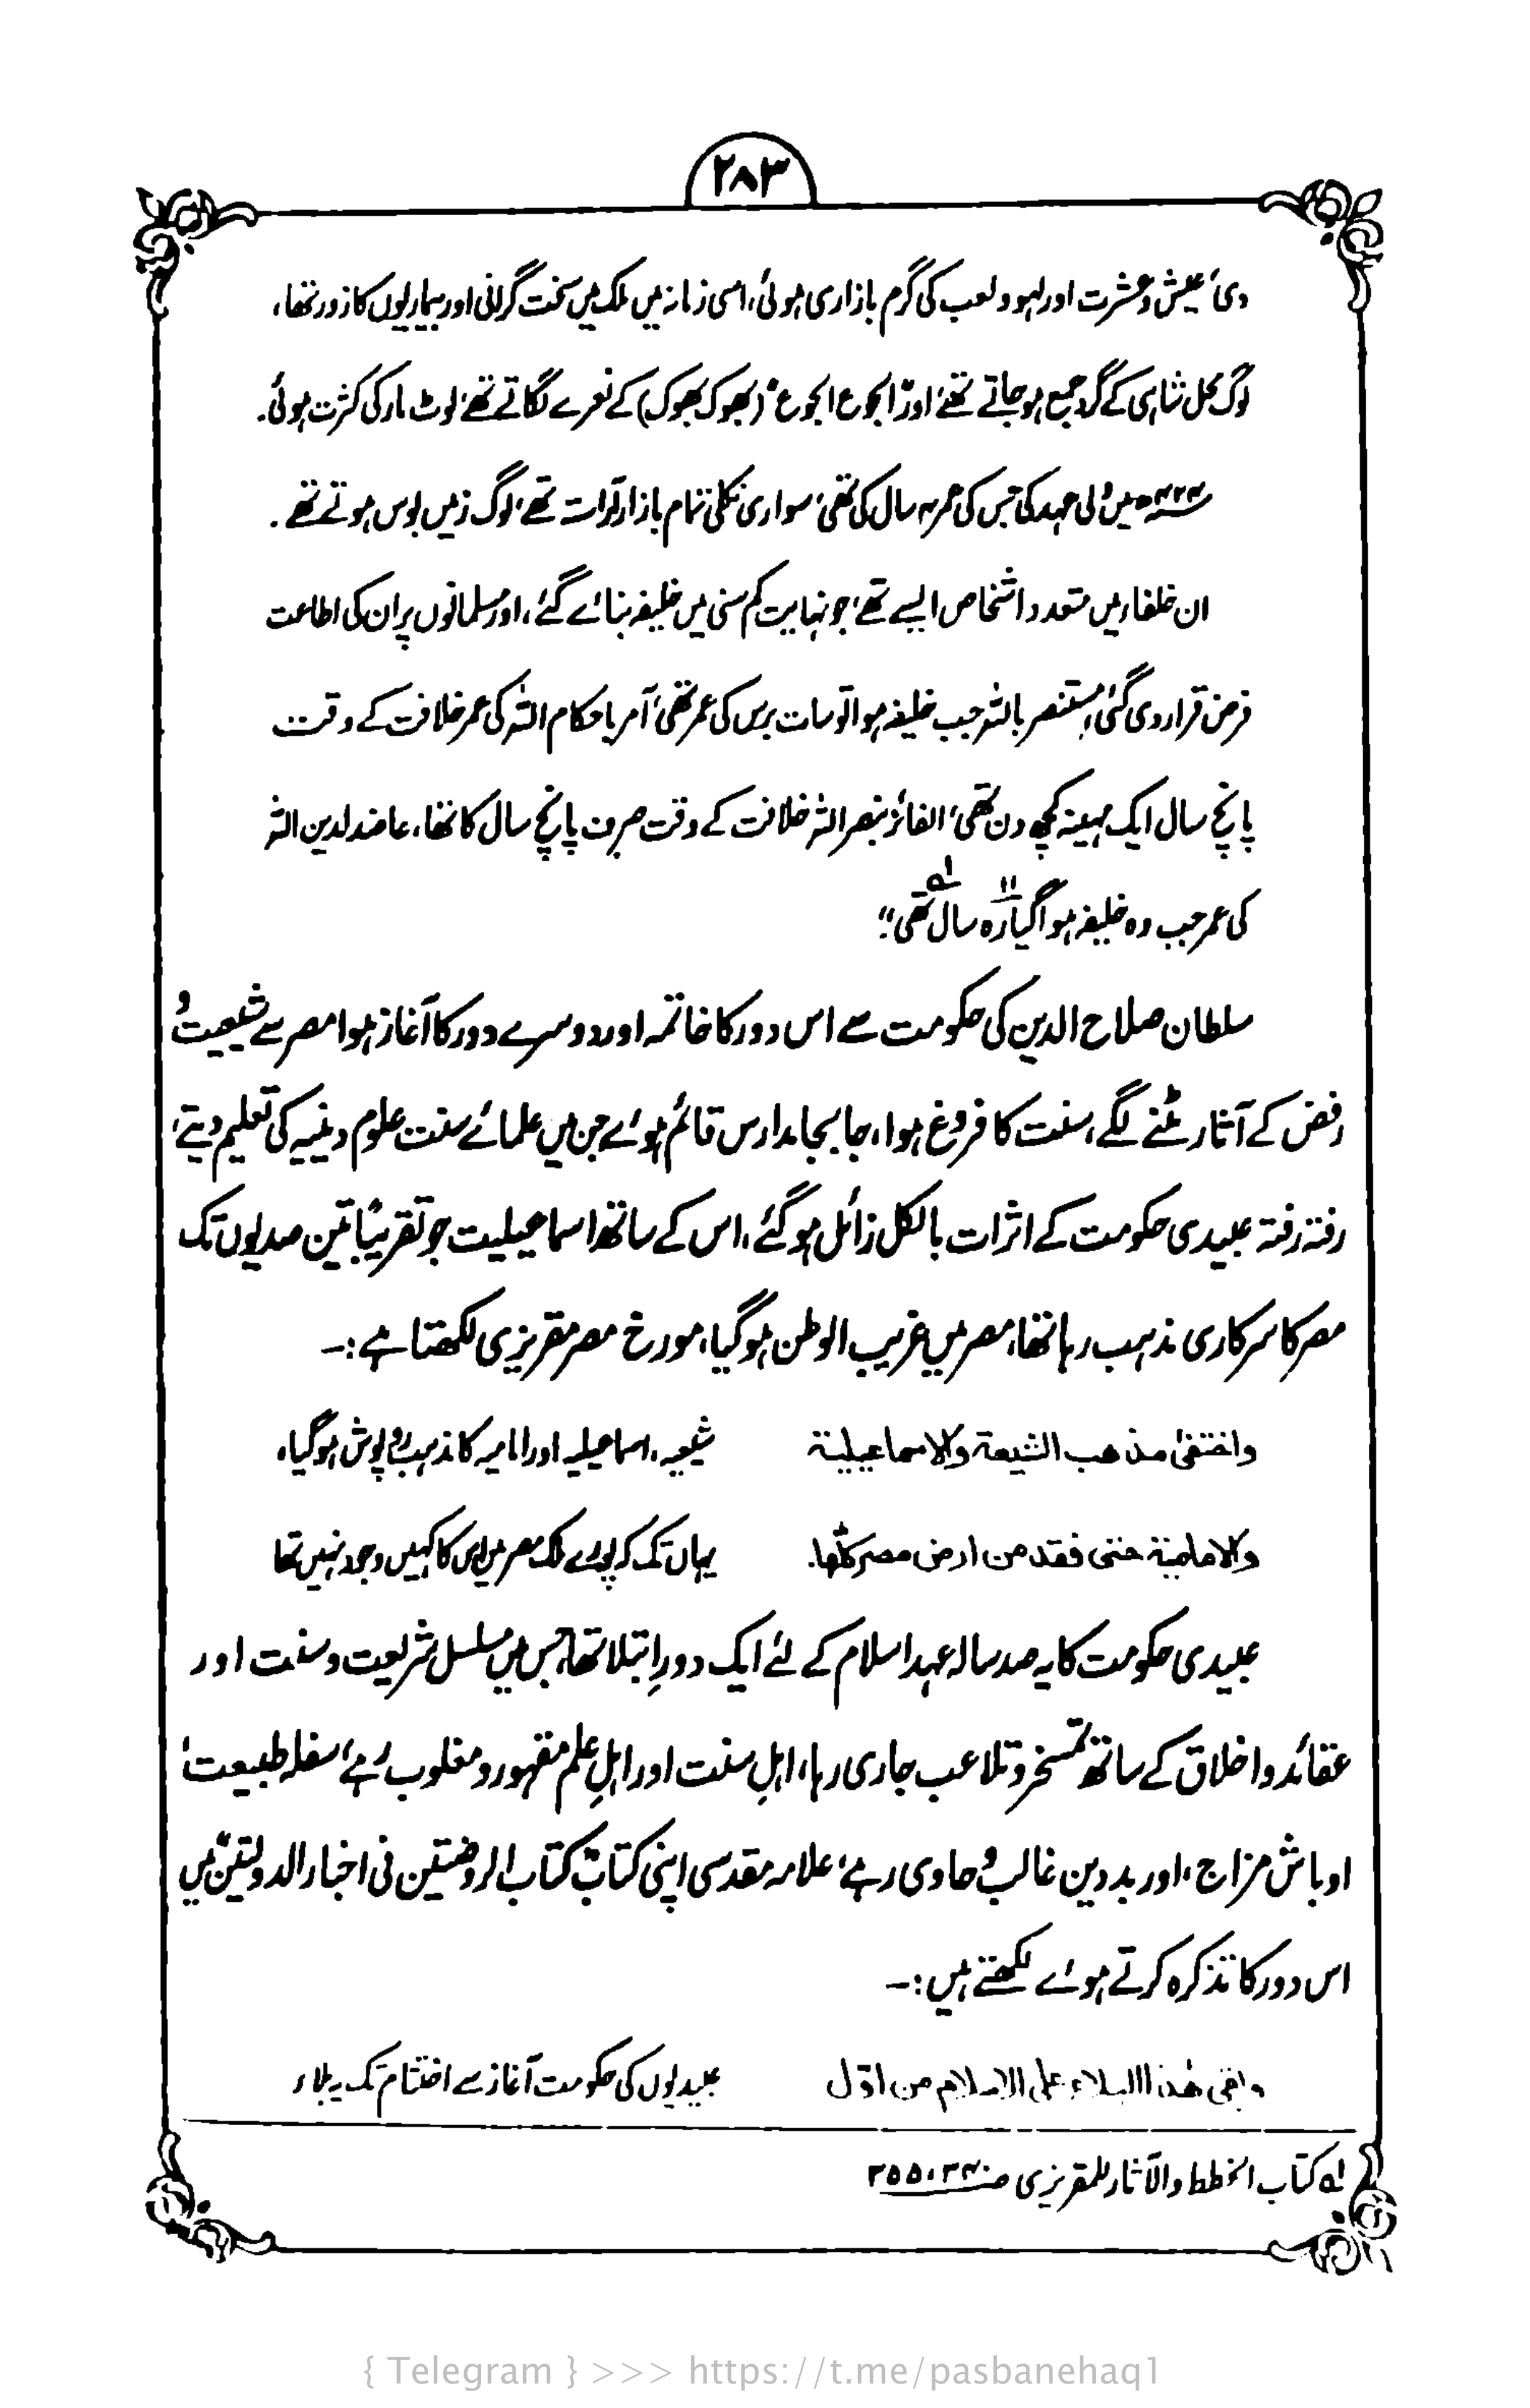 ۲۸۳
دی، عیش و عشرت اور لہو و لعب کی گرم بازاری ہوئی، اسی زمانہ میں ملک میں سخت گرانی اور بیماریوں کا زور تھا،
لوگ محل شاہی کے گرد جمع ہو جاتے تھے، اور "الجوع الجوع" (بھوک بھوک) کے نعرے لگاتے تھے، لوٹ مار کی کثرت ہوئی۔
میں ولی عہد کی جس کی عمر ۴ سال کی تھی، سواری نکلی تمام بازار آراستہ تھے، لوگ زمیں بوس ہوتے تھے۔
ان خلفاء میں متعدد اشخاص ایسے تھے، جو نہایت کم سنی میں خلیفہ بنائے گئے، اور مسلمانوں پر ان کی اطاعت
فرض قرار دی گئی، مستنصر باللہ جب خلیفہ ہوا تو سات برس کی عمر تھی، آمر باحکام اللہ کی عمر خلافت کے وقت
پانچ سال ایک مہینہ کچھ دن تھی، الفائز بنصر اللہ خلافت کے وقت صرف پانچ سال کا تھا، عاضد لدین اللہ
کی عمر جب وہ خلیفہ ہوا گیارہ ۱۱ سال تھی"؂۱
سلطان صلاح الدین کی حکومت سے اس دور کا خاتمہ اور دوسرے دور کا آغاز ہوا مصر سے شیعیت و
رفض کے آثار مٹنے لگے، سنت کا فروغ ہوا، جا بجا مدارس قائم ہوئے جن میں علمائے سنت علوم دینیہ کی تعلیم دیتے،
رفتہ رفتہ عبیدی حکومت کے اثرات بالکل زائل ہو گئے، اس کے ساتھ اسماعیلیت جو تقریباً تین صدیوں تک
مصر کا سرکاری مذہب رہا تھا، مصر میں غریب الوطن ہو گیا، مورخ مصر مقریزی لکھتا ہے:۔
واختفیٰ مذهب الشیعة والاسماعیلیة شیعہ، اسماعیلیہ اور امامیہ کا مذہب روپوش ہو گیا،
والامامیة حتی فقد من ارض مصر کلّها۔ یہاں تک کہ پورے ملک مصر میں اس کا کہیں وجود نہیں تھا
عبیدی حکومت کا یہ صد سالہ عہد اسلام کے لئے ایک دورِ ابتلا تھا، جس میں مسلسل شریعت و سنت اور
عقائد و اخلاق کے ساتھ تمسخر و تلاعب جاری رہا، اہلِ سنت اور اہلِ علم مقہور و مغلوب رہے، سفلہ طبیعت،
اوباش مزاج، اور بد دین غالب و حاوی رہے، علامہ مقدسی اپنی کتاب "کتاب الروضتین فی اخبار الدولتین" میں
اس دور کا تذکرہ کرتے ہوئے لکھتے ہیں:۔
وبقی هٰذا البلاء علی الاسلام من اوّل عبیدیوں کی حکومت آغاز سے اختتام تک یہ بلاء
؂۱ کتاب الخطط والآثار للمقریزی
{ Telegram } >>> https://t.me/pasbanehaq1